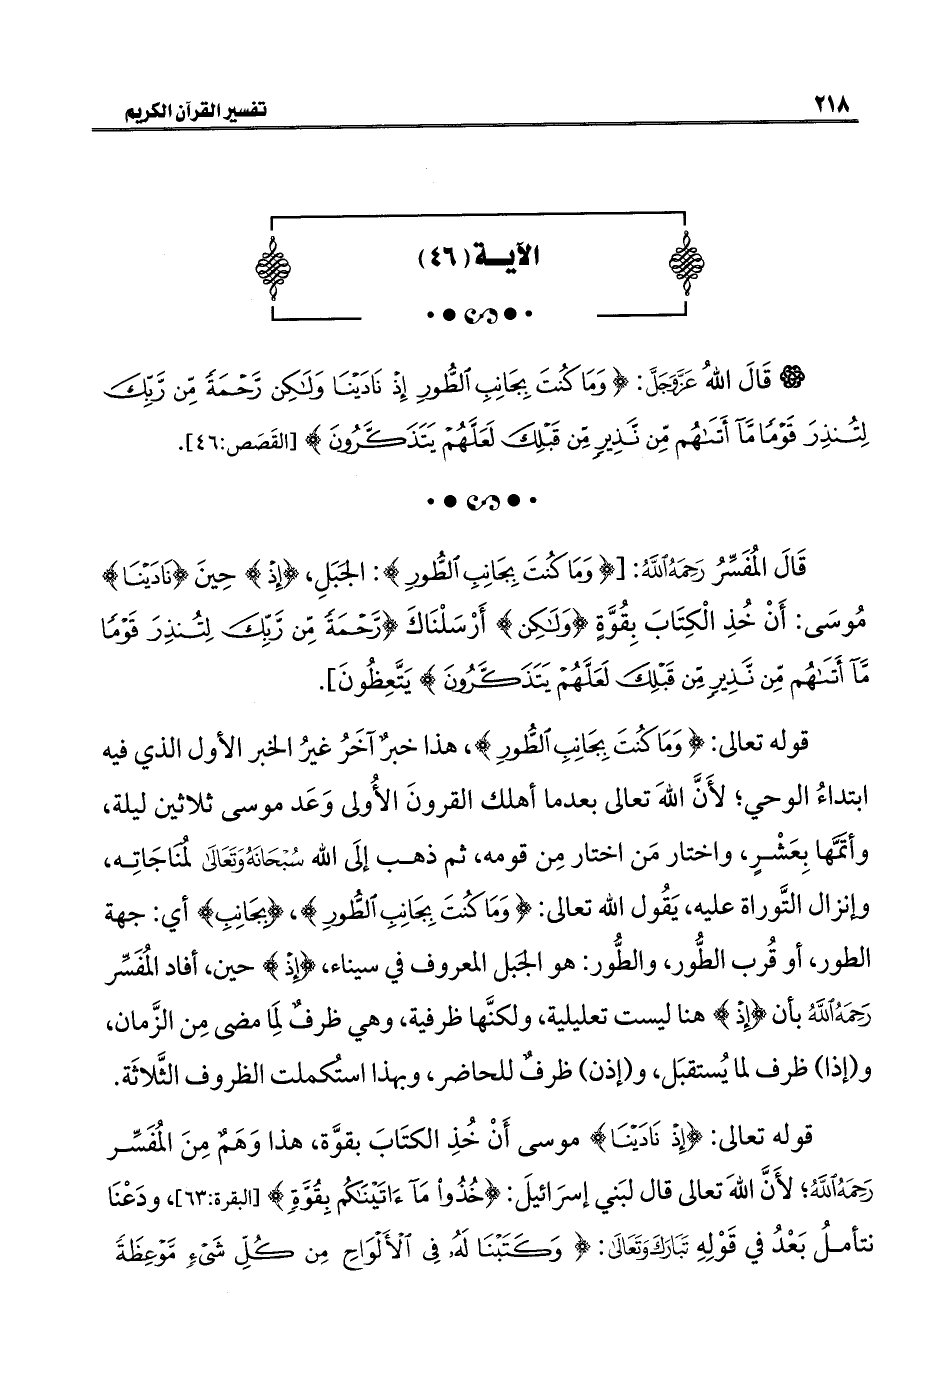 ٢١٨
تفسير القرآن الكريم
الآيـــة (٤٦)
قَالَ اللهُ عَزَّوَجَلَّ: ﴿ وَمَا كُنتَ بِجَانِبِ ٱلطُّورِ إِذْ نَادَيْنَا وَلَٰكِن رَّحْمَةً مِّن رَّبِّكَ
لِتُنذِرَ قَوْمًا مَّآ أَتَىٰهُم مِّن نَّذِيرٍ مِّن قَبْلِكَ لَعَلَّهُمْ يَتَذَكَّرُونَ ﴾ [القَصَص:٤٦].
قَالَ المُفَسِّرُ رَحِمَهُ ٱللَّهُ: [﴿ وَمَا كُنتَ بِجَانِبِ ٱلطُّورِ ﴾: الجَبَلِ، ﴿إِذْ﴾ حِينَ ﴿نَادَيْنَا﴾
مُوسَى: أَنْ خُذِ الْكِتَابَ بِقُوَّةٍ ﴿وَلَٰكِن﴾ أَرْسَلْنَاكَ ﴿رَّحْمَةً مِّن رَّبِّكَ لِتُنذِرَ قَوْمًا
مَّآ أَتَىٰهُم مِّن نَّذِيرٍ مِّن قَبْلِكَ لَعَلَّهُمْ يَتَذَكَّرُونَ ﴾ يَتَّعِظُونَ].
قوله تعالى: ﴿ وَمَا كُنتَ بِجَانِبِ ٱلطُّورِ ﴾، هذا خبرٌ آخَرُ غيرُ الخبر الأول الذي فيه
ابتداءُ الوحي؛ لأَنَّ اللهَ تعالى بعدما أهلك القرونَ الأُولى وَعَد موسى ثلاثين ليلة،
وأتمَّها بِعَشْـرٍ، واختار مَن اختار مِن قومه، ثم ذهب إلَى الله سُبْحَانَهُ وَتَعَالَى لمُنَاجَاتِـه،
وإنزال التَّوراة عليه، يَقُول الله تعالى: ﴿ وَمَا كُنتَ بِجَانِبِ ٱلطُّورِ ﴾، ﴿بِجَانِبِ﴾ أي: جهة
الطور، أو قُرب الطُّور، والطُّور: هو الجَبل المعروف في سيناء، ﴿إِذْ﴾ حين، أفاد المُفَسِّر
رَحِمَهُ ٱللَّهُ بأن ﴿إِذْ﴾ هنا ليست تعليلية، ولكنَّها ظرفية، وهي ظرفٌ لِمَا مضى مِن الزَّمان،
و(إذا) ظرف لما يُستقبَل، و(إذن) ظرفٌ للحاضر، وبهذا استُكملت الظروف الثَّلاثَة.
قوله تعالى: ﴿إِذْ نَادَيْنَا﴾ موسى أَنْ خُذِ الكتابَ بقوَّة، هذا وَهَمٌ مِنَ المُفَسِّـر
رَحِمَهُ ٱللَّهُ؛ لأَنَّ اللهَ تعالى قال لبَني إسرَائيلَ: ﴿خُذُوا۟ مَآ ءَاتَيْنَٰكُم بِقُوَّةٍ﴾ [البقرة:٦٣]، ودَعْنَا
نتأمـلُ بَعْدُ في قَوْلِهِ تَبَارَكَ وَتَعَالَى: ﴿ وَكَتَبْنَا لَهُۥ فِى ٱلْأَلْوَاحِ مِن كُلِّ شَىْءٍ مَّوْعِظَةً